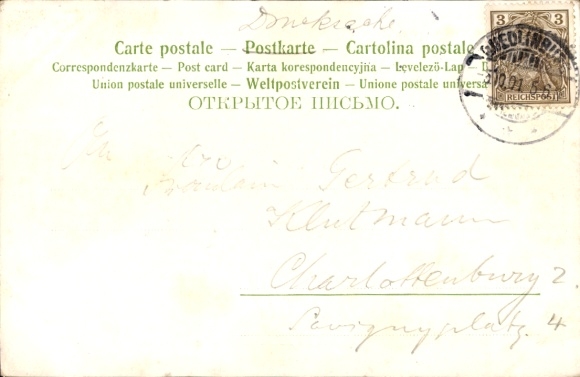 Drucksache
Carte postale — Postkarte — Cartolina postale
Correspondenzkarte — Post card — Karta korespondencyjna — Levelező-Lap
Union postale universelle — Weltpostverein — Unione postale universa
ОТКРЫТОЕ ПИСЬМО.
3 3
REICHSPOST
QUEDLINBURG
Fräulein Gertrud
Klutmann
Charlottenburg 2.
Savignyplatz 4